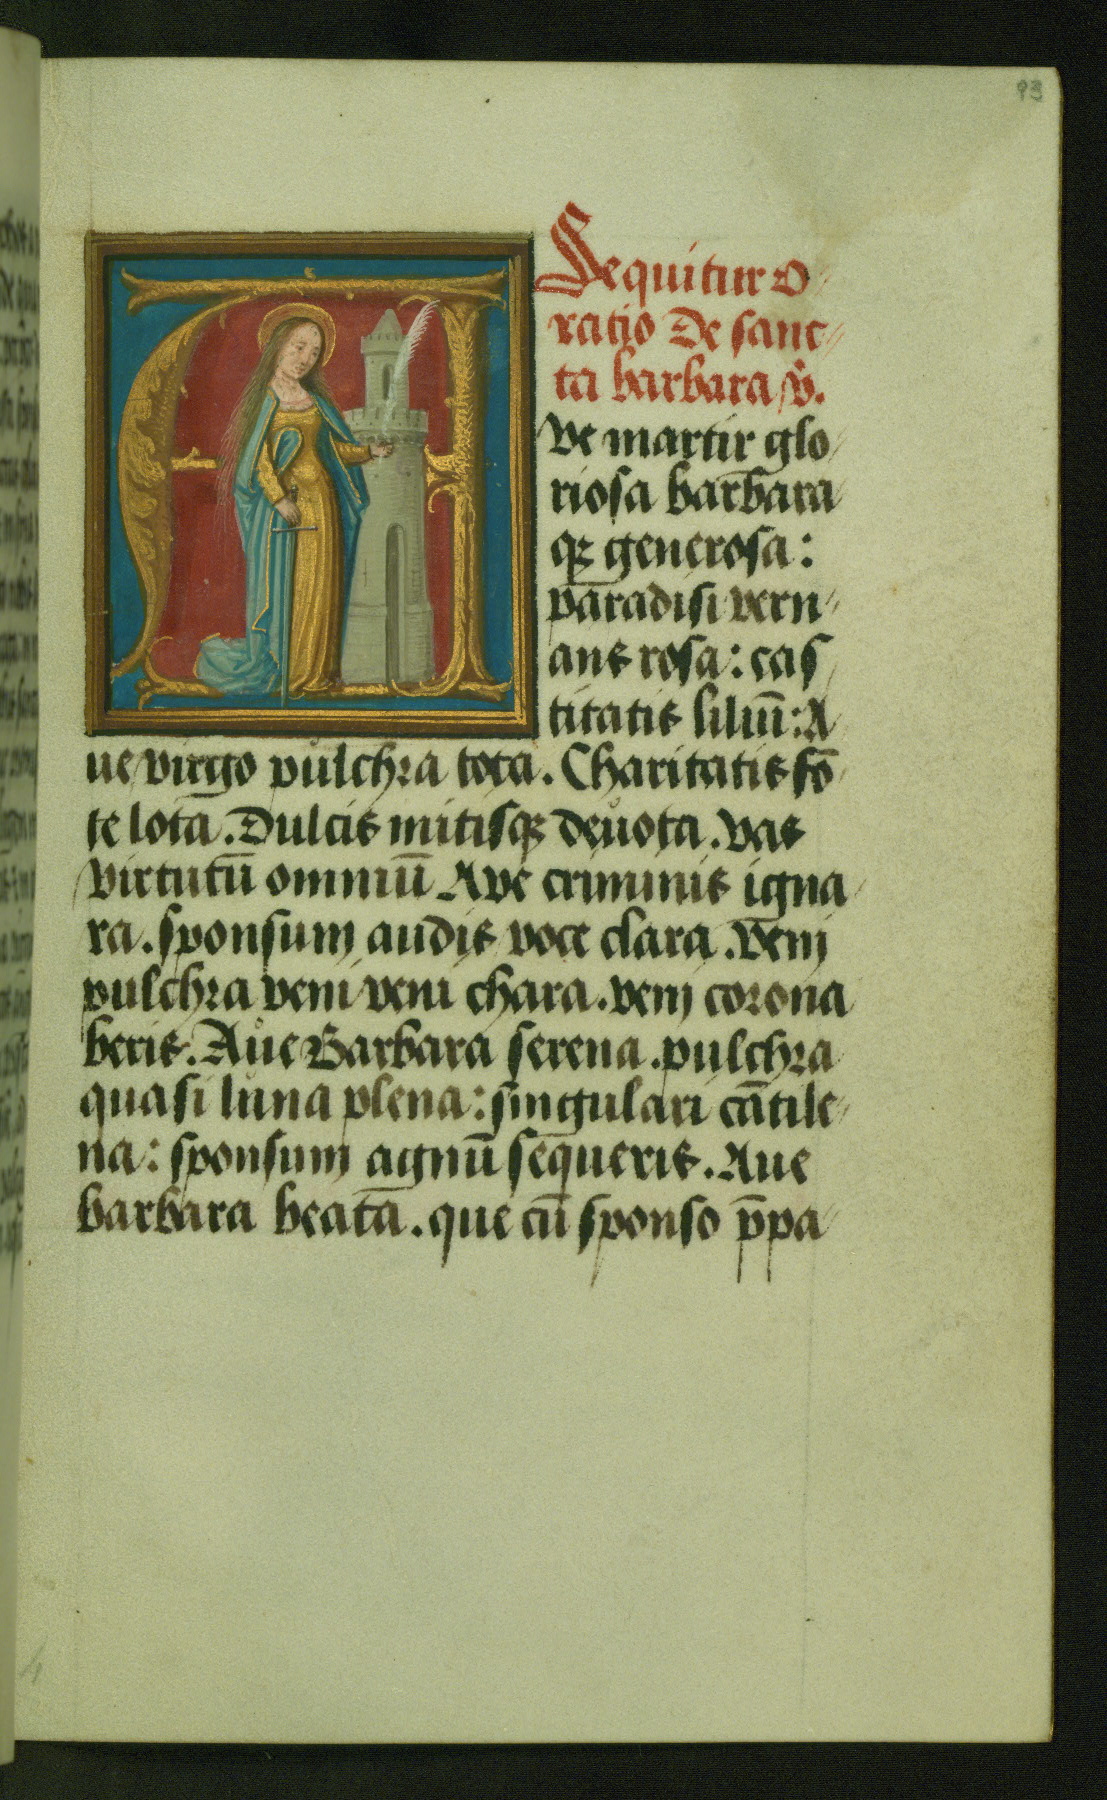 93
Sequitur o
ratio De sanc
ta barbara v̄.
Ve martir glo
riosa barbara
qꝫ generosa:
paradisi vern
ans rosa: cas
titatis liliū: A
ue virgo pulchra tota. Charitatis fō
te lota. Dulcis mitisqꝫ deuota. Vas
virtutū omniū Ave criminis igna
ra. sponsum audis voce clara. Veni
pulchra veni veni chara. veni corona
beris. Aue Barbara serena. pulchra
quasi luna plena: singulari cātile
na: sponsum agnū sequeris. Aue
barbara beata. que cū sponso p̄pa